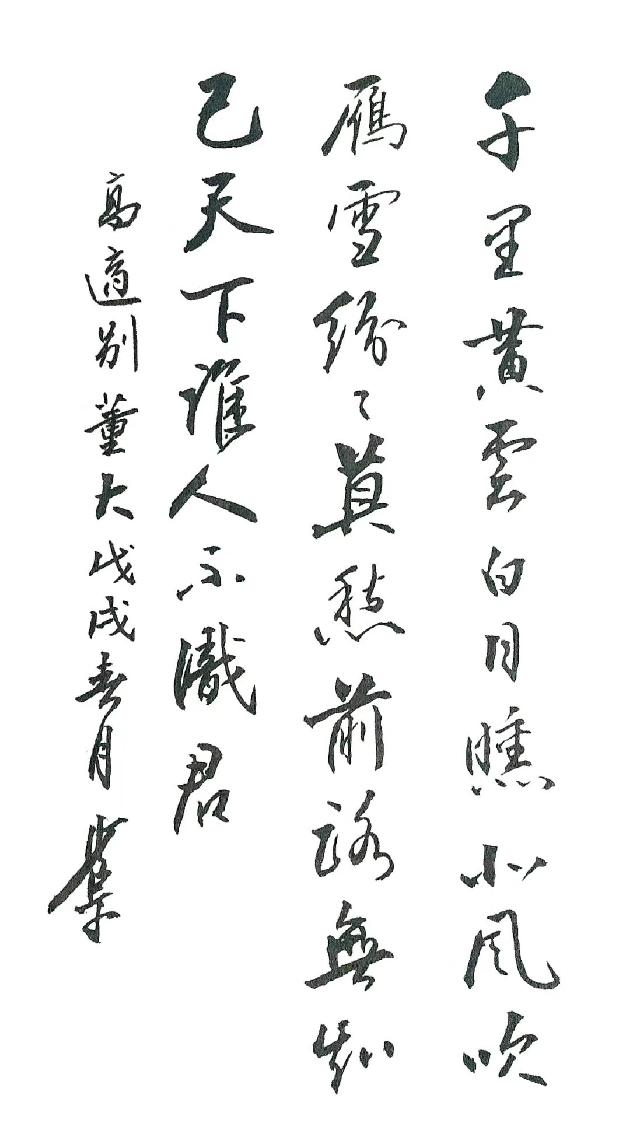 千里黄雲白日曛北風吹
雁雪紛々莫愁前路無知
己天下誰人不識君
高適别董大戊戌春月